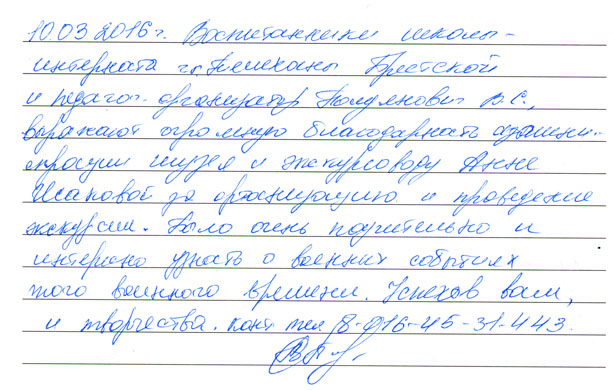 10.03.2016 г. Воспитанники школы-
интерната г. Телеханы Брестской
и педагог-организатор В.С.,
выражают огромную благодарность админи-
страции музея и экскурсоводу Анне
Исаковой за организацию и проведение
экскурсии. Было очень поучительно и
интересно узнать о военных событиях
того военного времени. Успехов вам,
и творчества. Конт тел 8-916-45-31-443.